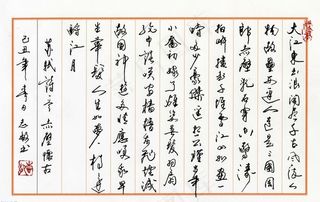 大江東去浪淘盡千古風流人
物故壘西邊人道是三國周
郎赤壁乱石穿空驚濤
拍岸捲起千堆雪江山如画一
時多少豪傑遥想公瑾當年
小喬初嫁了雄姿英發羽扇
綸巾談笑間檣櫓灰飛煙滅
故國神遊多情應笑我早
生華髮人生如夢一樽還
酹江月
蘇軾 赤壁懷古
己丑年 日 书